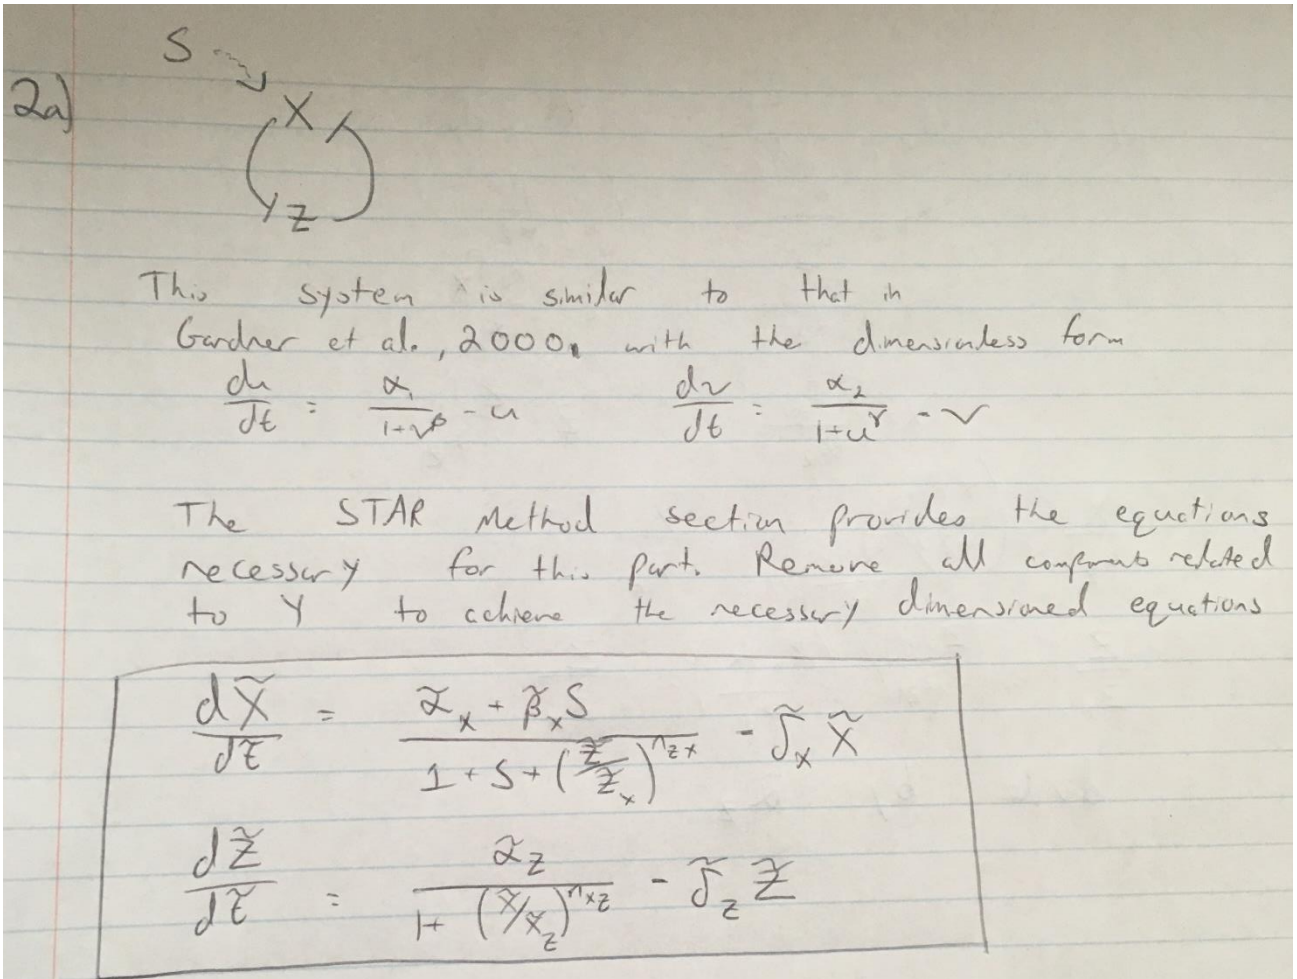 S
2a)
X
Z
This system is similar to that in
Gardner et al., 2000, with the dimensionless form
du/dt = α₁/(1+v^β) - u   dv/dt = α₂/(1+u^γ) - v
The STAR Method section provides the equations
necessary for this part. Remove all components related
to Y to achieve the necessary dimensioned equations
dX̃/dt̃ = (α̃_x + β̃_x S)/(1 + S + (Z̃/Z̃_x)^(n_zx)) - δ̃_x X̃
dZ̃/dt̃ = α̃_z/(1 + (X̃/X̃_z)^(n_xz)) - δ̃_z Z̃